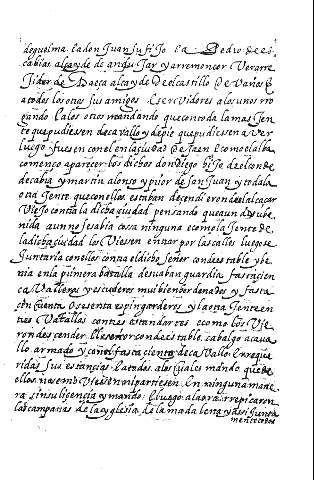 de quelma e a don Juan su fijo e a Pedro de es
cabias alcayde de andujar y a rremencor Verarre
jidor de Baeça alcayde de el castillo de Vaños E
a todos los otros sus amigos E servidores a los unos rro
gando E a los otros mandando que con toda la mas jen
te que pudiesen de cavallo y de pie que pudiesen aver
luego fuesen con el en la ciudad de Jaen E como el alba
començo aparecer los dichos don diego hijo de el conde
de cabra y martin alonso y prior de San Juan y toda la
otra jente que con ellos estaban decendieron de el alcaçar
Viejo contra la dicha ciudad pensando que aun dsu be
nida aun no se sabia cosa ninguna e como la jente de
la dicha ciudad los Viesen entrar por las calles luego se
Juntaria con ellos contra el dicho señor condestable y be
nia en la primera batalla desu abanguardia fasta cien
cavalleros y escuderos mui bien hordenados y fasta
cincuenta o sesenta espingarderos y la otra jente en
tres Vatallas con tres estandartes e como los Vie
ron descender El señor condestable cabalgo a cava
llo armado y con el fasta ciento de cavallo En reque
ridas sus estancias E a todos a los cuales mando que de
ellos no semo Viesen ni partiesen En ninguna mane
ra sin su licencia y mando E luego a la ora rrepicaron
las campanas de la yglesia de la madalena y assi junta
mente todos